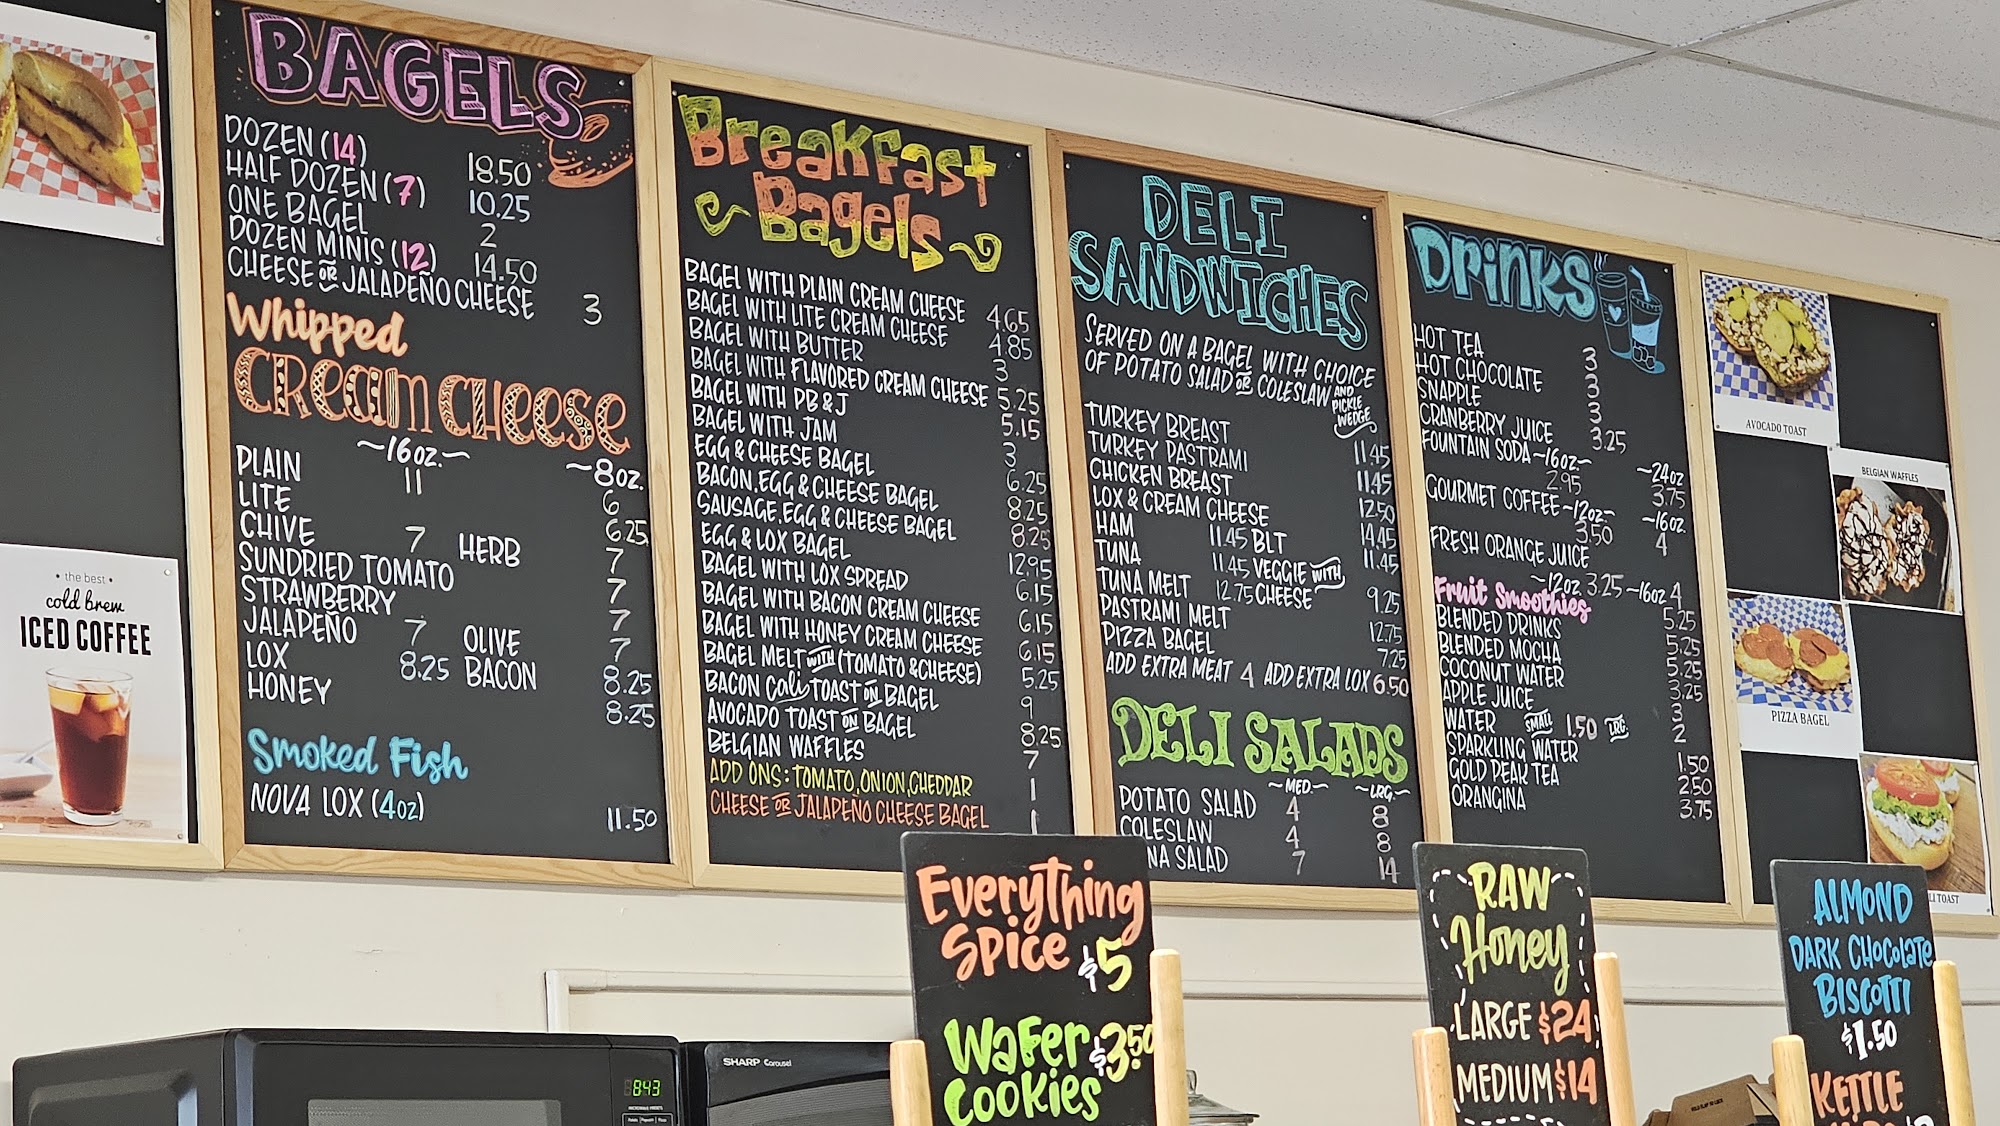 BAGELS
DOZEN (14) 18.50
HALF DOZEN (7) 10.25
ONE BAGEL 2
DOZEN MINIS (12) 14.50
CHEESE OR JALAPEÑO CHEESE 3
Whipped
CREAM CHEESE
~16oz.~ ~8oz.
PLAIN 11 6
LITE 6.25
CHIVE 7 HERB 7
SUNDRIED TOMATO 7
STRAWBERRY 7
JALAPEÑO 7 OLIVE 7
LOX 8.25 BACON 8.25
HONEY 8.25
Smoked Fish
NOVA LOX (4oz) 11.50
Breakfast
Bagels
BAGEL WITH PLAIN CREAM CHEESE 4.65
BAGEL WITH LITE CREAM CHEESE 4.85
BAGEL WITH BUTTER 3
BAGEL WITH FLAVORED CREAM CHEESE 5.25
BAGEL WITH PB & J 5.15
BAGEL WITH JAM 3
EGG & CHEESE BAGEL 6.25
BACON, EGG & CHEESE BAGEL 8.25
SAUSAGE, EGG & CHEESE BAGEL 8.25
EGG & LOX BAGEL 12.95
BAGEL WITH LOX SPREAD 6.15
BAGEL WITH BACON CREAM CHEESE 6.15
BAGEL WITH HONEY CREAM CHEESE 6.15
BAGEL MELT WITH (TOMATO & CHEESE) 5.25
BACON Cali TOAST ON BAGEL 9
AVOCADO TOAST ON BAGEL 8.25
BELGIAN WAFFLES 7
ADD ONS: TOMATO, ONION, CHEDDAR 1
CHEESE OR JALAPEÑO CHEESE BAGEL 1
DELI
SANDWICHES
SERVED ON A BAGEL WITH CHOICE
OF POTATO SALAD OR COLESLAW AND PICKLE WEDGE
TURKEY BREAST 11.45
TURKEY PASTRAMI 11.45
CHICKEN BREAST 12.50
LOX & CREAM CHEESE 14.45
HAM 11.45 BLT 11.45
TUNA 11.45 VEGGIE WITH
TUNA MELT 12.75 CHEESE 9.25
PASTRAMI MELT 12.75
PIZZA BAGEL 7.25
ADD EXTRA MEAT 4 ADD EXTRA LOX 6.50
DELI SALADS
~MED.~ ~LRG.~
POTATO SALAD 4 8
COLESLAW 4 8
NA SALAD 7 14
DRINKS
HOT TEA 3
HOT CHOCOLATE 3
SNAPPLE 3
CRANBERRY JUICE 3.25
FOUNTAIN SODA ~16oz.~ ~24oz
2.95 3.75
GOURMET COFFEE ~12oz.~ ~16oz.
3.50 4
FRESH ORANGE JUICE
~12oz 3.25 ~16oz 4
Fruit Smoothies 5.25
BLENDED DRINKS 5.25
BLENDED MOCHA 5.25
COCONUT WATER 3.25
APPLE JUICE 3
WATER SMALL 1.50 LRG. 2
SPARKLING WATER 1.50
GOLD PEAK TEA 2.50
ORANGINA 3.75
• the best •
cold brew
ICED COFFEE
AVOCADO TOAST
BELGIAN WAFFLES
PIZZA BAGEL
LI TOAST
Everything
Spice $5
Wafer $3.50
Cookies
RAW
Honey
LARGE $24
MEDIUM $14
ALMOND
DARK CHOCOLATE
BISCOTTI
$1.50
KETTLE
SHARP Carousel
8:43